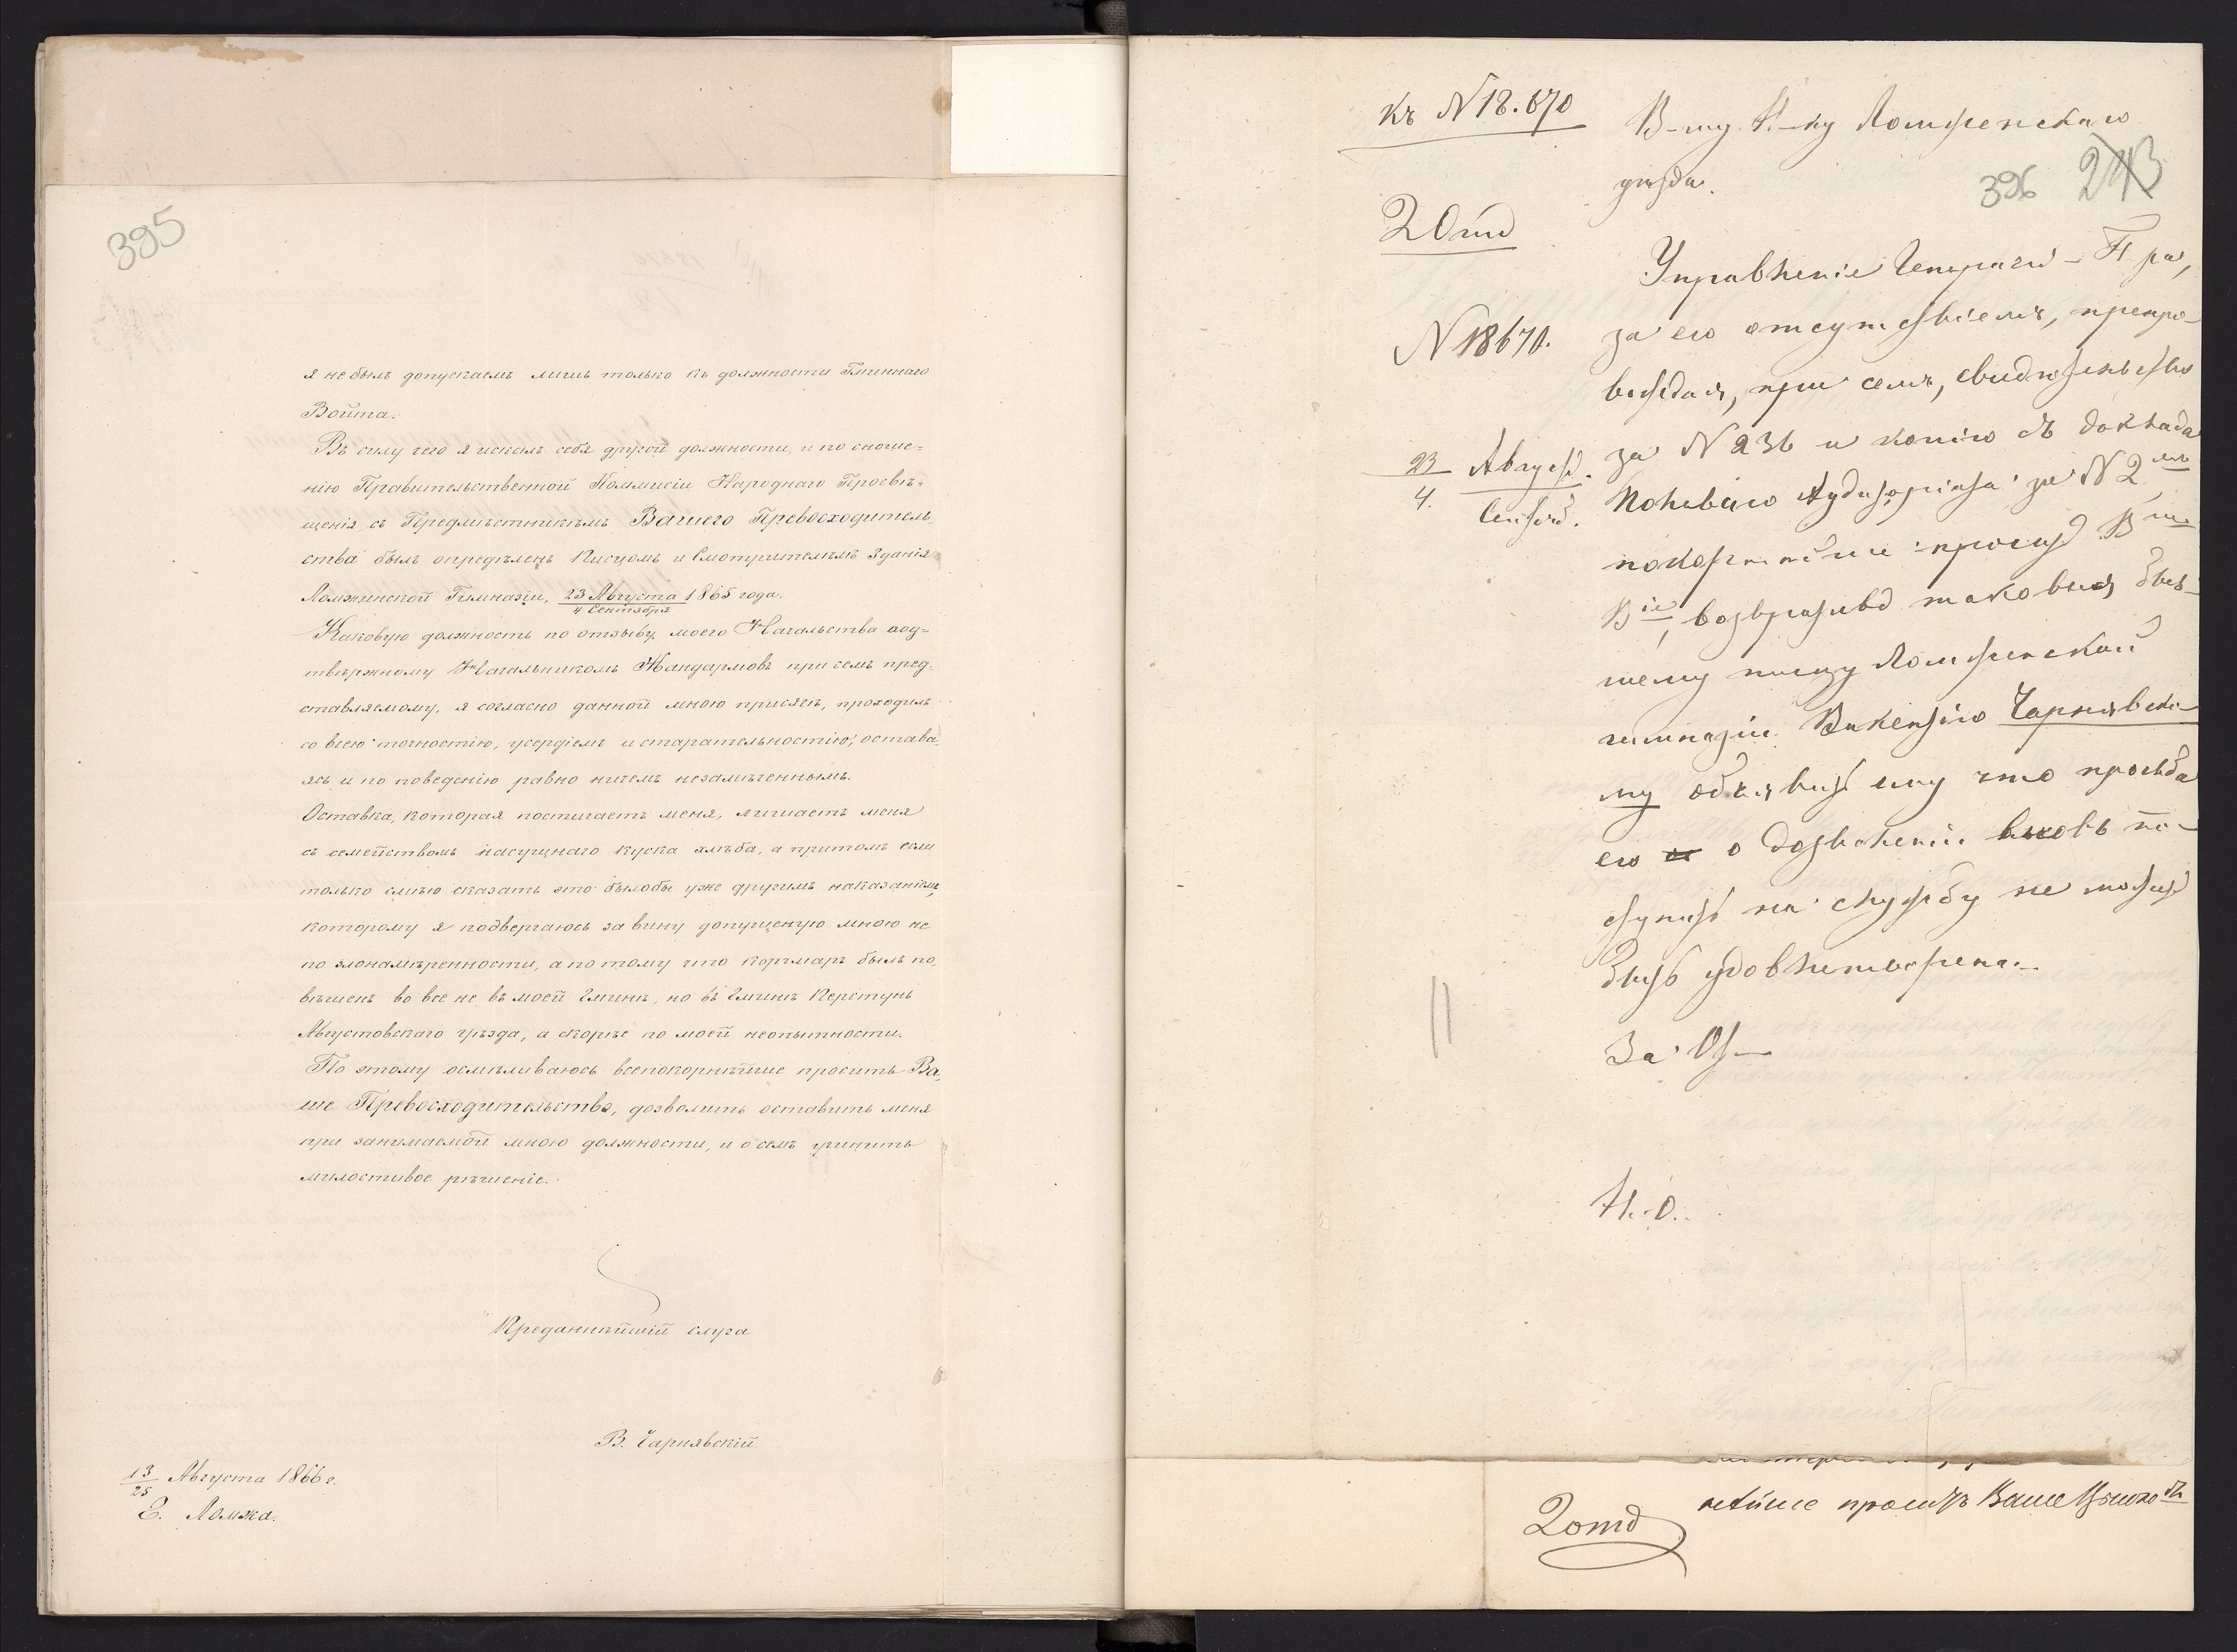 395
я не былъ допускаемъ лишь только къ должности Гминнаго
Войта.
Въ силу чего я искалъ себѣ другой должности, и по сноше-
нію Правительственной Коммисіи Народнаго Просвѣ-
щенія съ Предмѣстникомъ Вашего Превосходитель
ства былъ опредѣленъ Писцомъ и Смотрителемъ Зданія
Ломжинской Гимназіи, 23 Августа 1865 года.
4 Сентября
Каковую должность по отзыву моего Начальства под-
твержному Начальникомъ Жандармовъ при семъ пред-
ставляемому, я согласно данной мною присягѣ, проходилъ
со всею точностію, усердіемъ и старательностію, остава
ясь и по поведенію равно ничемъ незамѣченнымъ.
Оставка, которая постигаетъ меня, лишаетъ меня
съ семействомъ насущнаго куска хлѣба, а притомъ если
только смѣю сказать это былобы уже другимъ наказаніемъ,
которому я подвергаюсь за вину допущеную мною не
по злонамѣренности, а по тому что корчмарь былъ по
вѣшенъ во все не въ моей Гминѣ, но въ Гминѣ Перстунь
Августовскаго уѣзда, а скорѣе по моей неопытности.
По этому осмѣливаюсь всепокорнѣйше просить Ва
ше Превосходительство, дозволить оставить меня
при занимаемой мною должности, и о семъ учинить
милостивое рѣшеніе.
Преданнѣйшій слуга
В. Чарнявскій
13/25 Августа 1866 г.
Г. Ломжа.
къ N 18.670
В-му Н-ку Ломженскаго
уѣзда.
396 243
2 Отд
Управленіе Генерал - П ра,
N 18670.
за его отсутствіемъ, препро-
вождая, при семъ, свидѣтельство
23 Август.
4. Сентяб.
за N 236 и копію съ доклада
Полеваго Аудиторіата за N 2
покорнѣйше проситъ В
В іе, возвративъ таковыя быв-
шему писцу Ломженской
гимназіи Викентію Чарнявско-
му объявить ему что просьба
его о дозволеніи вновь по-
ступить на службу не можетъ
быть удовлетворена.
За
Н. О.
2 отд
нѣйше проситъ Ваше